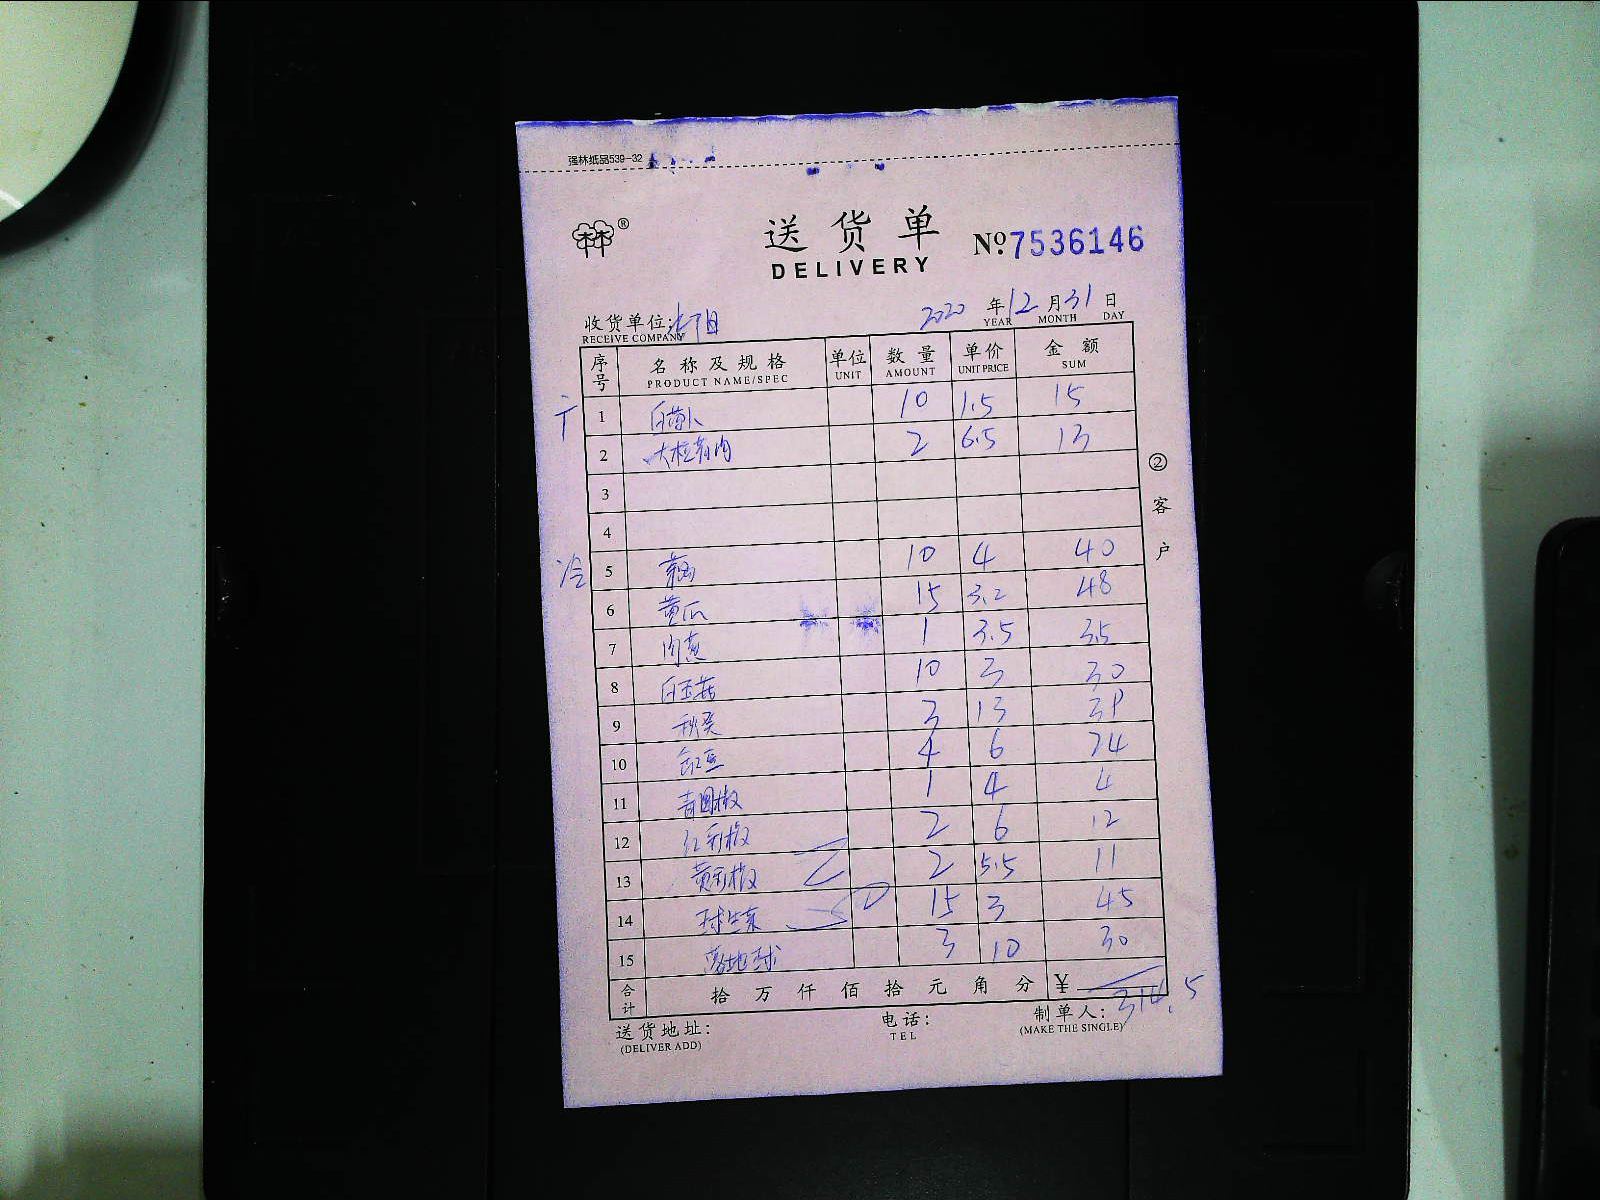 强林纸品539-32
林林®
送货单
DELIVERY
№7536146
收货单位:
RECEIVE COMPANY
2020 年 12 月 31 日
YEAR MONTH DAY
序号 名称及规格 单位 数量 单价 金额
PRODUCT NAME/SPEC UNIT AMOUNT UNIT PRICE SUM
1 白萝卜 10 1.5 15
2 2 6.5 13
3
4
冷 5 10 4 40
6 黄瓜 15 3.2 48
7 肉葱 1 3.5 3.5
8 白玉菇 10 3 30
9 秋葵 3 13 39
10 4 6 24
11 青圆椒 1 4 4
12 红彩椒 2 6 12
13 黄彩椒 2 5.5 11
14 球生菜 15 3 45
15 3 10 30
合计 拾 万 仟 佰 拾 元 角 分 ¥ 314.5
送货地址: 电话: 制单人:
(DELIVER ADD) TEL (MAKE THE SINGLE)
② 客户